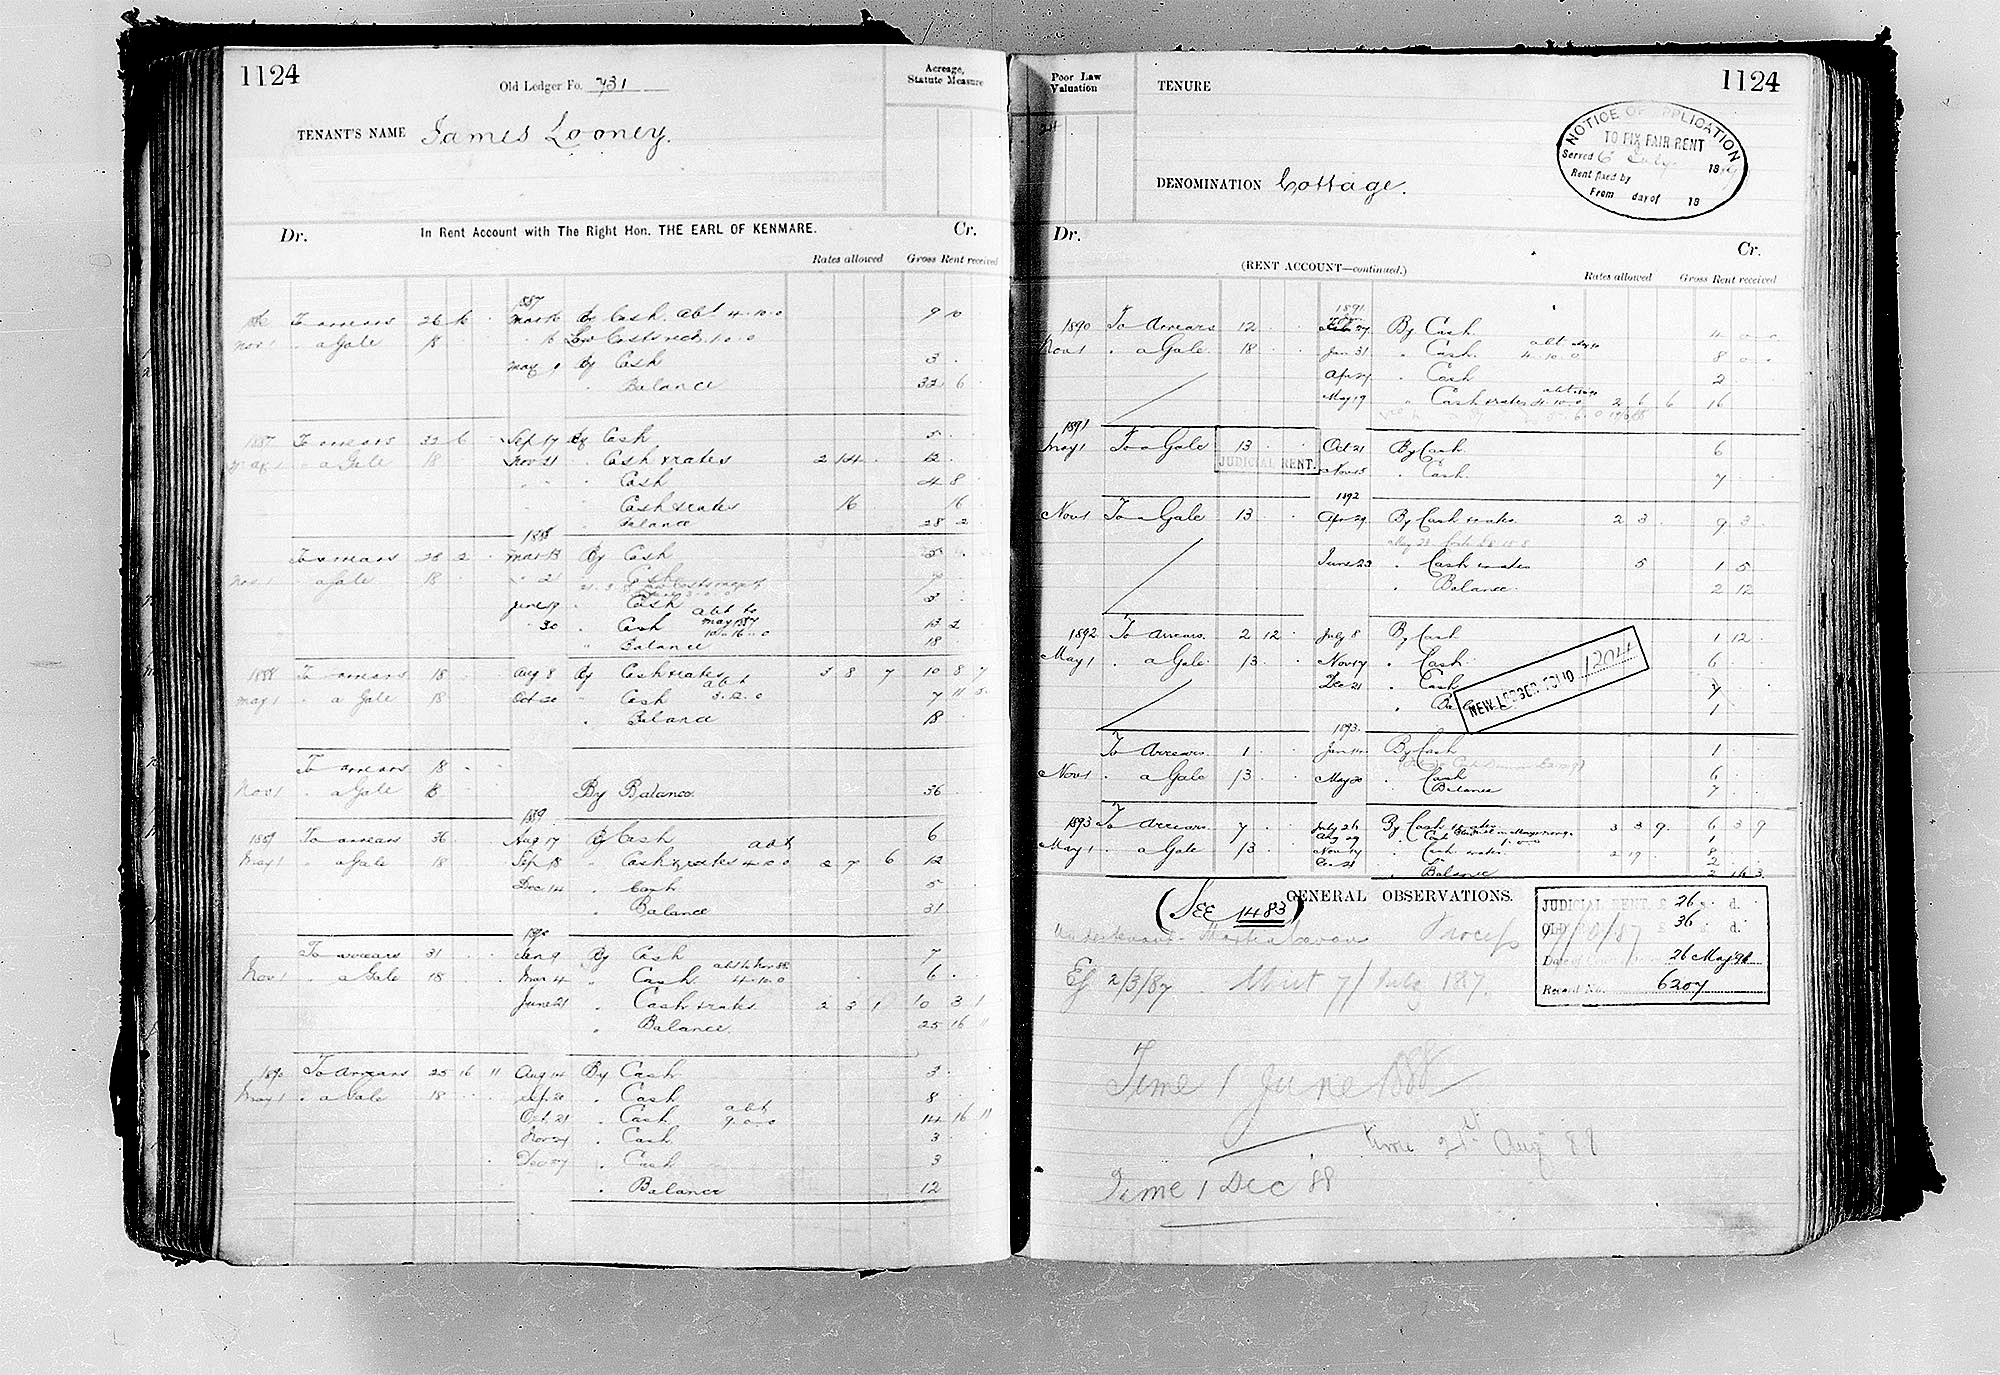 1124
Old Ledger Fo. 731
Acreage,
Statute Measure
TENANT'S NAME James Looney.
Dr. In Rent Account with The Right Hon. THE EARL OF KENMARE. Cr.
Rates allowed Gross Rent received
1887
To arrears 26 Mar 16 By Cash. abt 4.10.0 9 10
Nov 1 " a Gale 18 " 16 Law Costs recd. 1.0.0
May 9 By Cash 3
" Balance 32 6
1887 To arrears 32 6 Sep 17 By Cash 5
May 1 " a Gale 18 Nov 21 " Cash & rates 2 14 12
" Cash 4 8
Cash & rates 16 16
Balance 28 2
1888
To arrears 28 2 Mar 13 By Cash 5
Nov 1 " a Gale 18 " 21 " Cash 7
June 19 " Cash 3
" 30 " Cash abt to May 1887 10.16.0 13 2
" Balance 18
1888 To arrears 18 Aug 8 By Cash & rates 3 8 7 10 8 7
May 1 " a Gale 18 Oct 20 " Cash abt 3.12.0 7 11 5
" Balance 18
To arrears 18
Nov 1 " a Gale 18 By Balance 36
1889
1889 To arrears 36 Aug 17 By Cash 6
May 1 " a Gale 18 Sep 18 " Cash & rates abt 4.0.0 2 7 6 12
Dec 14 " Cash 5
" Balance 31
1890
To arrears 31 Jan 9 By Cash 7
Nov 1 " a Gale 18 Mar 4 " Cash abt to Nov 88 4.10.0 6
June 21 " Cash & rates 2 3 1 10 3 1
" Balance 25 16 11
1890 To Arrears 25 16 11 Aug 14 By Cash 3
May 1 " a Gale 18 Sep 20 " Cash 8
Oct 21 " Cash abt 9.0.0 14 16 11
Nov 24 " Cash 3
Dec " Cash 3
" Balance 12
Poor Law
Valuation
TENURE
1124
NOTICE OF APPLICATION
TO FIX FAIR RENT
Served 6 July 18
Rent fixed by
From day of 18
DENOMINATION Cottage.
Dr. Cr.
(RENT ACCOUNT—continued.)
Rates allowed Gross Rent received
1891
1890 To Arrears 12 By Cash 4 0 0
Nov 1 " a Gale 18 Jan 31 " Cash abt 4.10.0 8 0 0
Apr 27 " Cash 2
May 19 " Cash & rates 4.10.0 2 6 6 16
1891
May 1 To a Gale 13 Oct 21 By Cash 6
JUDICIAL RENT.
Nov 15 " Cash 7
1892
Nov 1 To a Gale 13 Apr 29 By Cash & rates 2 3 9 3
June 23 " Cash & rates 5 1 5
" Balance 2 12
1892 To Arrears 2 12 July 8 By Cash 1 12
May 1 " a Gale 13 Nov 17 " Cash 6
Dec 21 " Cash 7
" Balance 1
NEW LEDGER FOLIO 1204
1893
To Arrears 1 Jan 14 By Cash 1
Nov 1 " a Gale 13 May 20 " Cash 6
Balance 7
1893 To Arrears 7 July 26 By Cash & rates 3 3 9 6 3 9
Aug 29 1
May 1 " a Gale 13 Nov 14 " Cash & rates 2 19 8
Dec 21 2
" Balance 2 16 3
(SEE 1483)
GENERAL OBSERVATIONS.
Undertenant Process
Ej 2/3/87 Writ 7/ July 187.
JUDICIAL RENT £ 26 s. d.
OLD 36 s. d.
26 May 91
Record No. 6207
Time 1 June 1888
time 21st Aug 88
Time 1 Dec 88